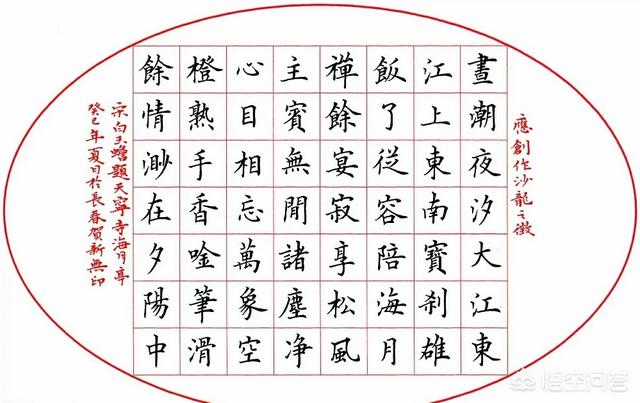 應創作沙龍之徵
晝潮夜汐大江東
江上東南寶刹雄
飯了從容陪海月
禪餘宴寂享松風
主賓無間諸塵净
心目相忘萬象空
橙熟手香唫筆滑
餘情渺在夕陽中
宋白玉蟾題天寧寺海月亭
癸巳年夏日於長春賀新無印
悟空问答